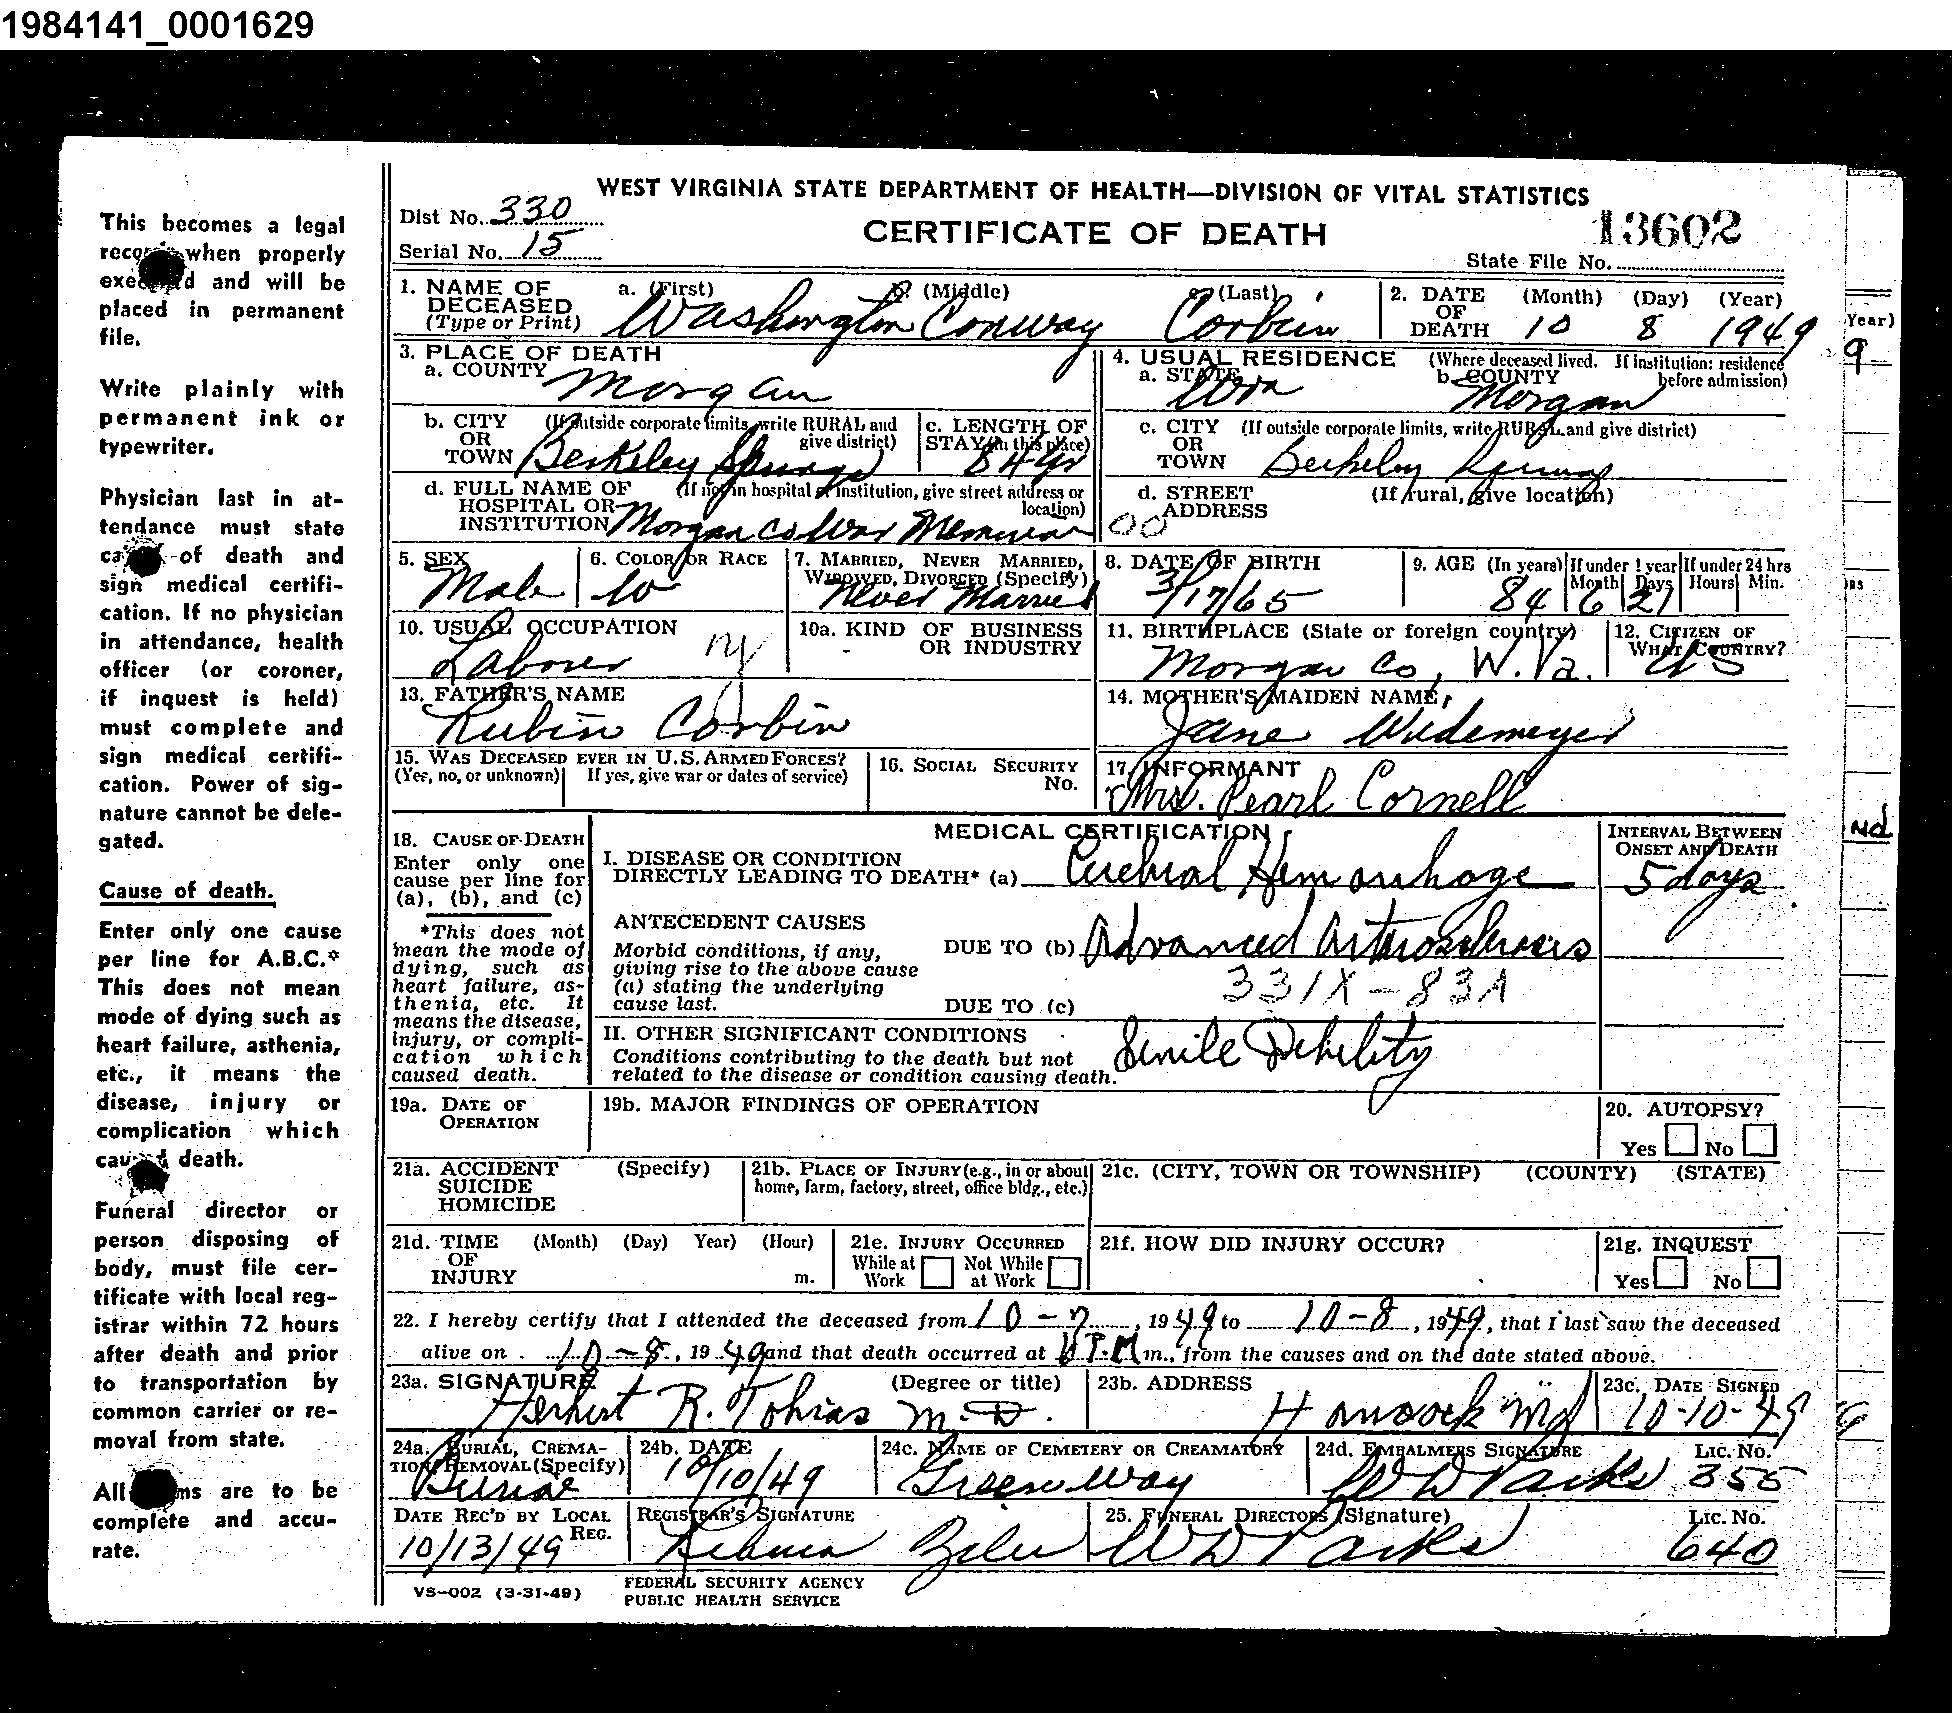 1984141_0001629
This becomes a legal
when properly
and will be
placed in permanent
file.
Write plainly with
permanent ink or
typewriter.
Physician last in at-
tendance must state
of death and
sign medical certifi-
cation. If no physician
in attendance, health
officer (or coroner,
if inquest is held)
must complete and
sign medical certifi-
cation. Power of sig-
nature cannot be dele-
gated.
Cause of death.
Enter only one cause
per line for A.B.C.*
This does not mean
mode of dying such as
heart failure, asthenia,
etc., it means the
disease, injury or
complication which
death.
Funeral director or
person disposing of
body, must file cer-
tificate with local reg-
istrar within 72 hours
after death and prior
to transportation by
common carrier or re-
moval from state.
All are to be
complete and accu-
rate.
WEST VIRGINIA STATE DEPARTMENT OF HEALTH—DIVISION OF VITAL STATISTICS
Dist No. 330
CERTIFICATE OF DEATH
13602
Serial No. 15
State File No.
1. NAME OF DECEASED (Type or Print) a. (First) b. (Middle) c. (Last)
Washington Conway Corbin
2. DATE OF DEATH (Month) (Day) (Year)
10 8 1949
3. PLACE OF DEATH
a. COUNTY Morgan
4. USUAL RESIDENCE (Where deceased lived. If institution: residence before admission)
a. STATE b. COUNTY Morgan
b. CITY OR TOWN (If outside corporate limits, write RURAL and give district)
Berkeley Springs
c. LENGTH OF STAY (in this place)
84 yr
c. CITY OR TOWN (If outside corporate limits, write RURAL and give district)
Berkeley Springs
d. FULL NAME OF HOSPITAL OR INSTITUTION (If not in hospital or institution, give street address or location)
Morgan Co War Memorial
d. STREET ADDRESS (If rural, give location)
00
5. SEX
Male
6. COLOR OR RACE
W
7. MARRIED, NEVER MARRIED, WIDOWED, DIVORCED (Specify)
Never Married
8. DATE OF BIRTH
3/17/65
9. AGE (In years) If under 1 year If under 24 hrs
Month Days Hours Min.
84 6 21
10. USUAL OCCUPATION
Laborer
10a. KIND OF BUSINESS OR INDUSTRY
11. BIRTHPLACE (State or foreign country)
Morgan Co, W.Va.
12. CITIZEN OF WHAT COUNTRY?
US
13. FATHER'S NAME
Rubin Corbin
14. MOTHER'S MAIDEN NAME
Jane Widemeyer
15. WAS DECEASED EVER IN U.S. ARMED FORCES?
(Yes, no, or unknown) If yes, give war or dates of service)
16. SOCIAL SECURITY No.
17. INFORMANT
Mrs. Pearl Cornell
18. CAUSE OF DEATH
Enter only one
cause per line for
(a), (b), and (c)
*This does not
mean the mode of
dying, such as
heart failure, as-
thenia, etc. It
means the disease,
injury, or compli-
cation which
caused death.
MEDICAL CERTIFICATION
I. DISEASE OR CONDITION
DIRECTLY LEADING TO DEATH* (a) Cerebral Hemorrhage
INTERVAL BETWEEN ONSET AND DEATH
5 days
ANTECEDENT CAUSES
Morbid conditions, if any,
giving rise to the above cause
(a) stating the underlying
cause last.
DUE TO (b) Advanced Arterosclerosis
331X-83A
DUE TO (c)
II. OTHER SIGNIFICANT CONDITIONS
Conditions contributing to the death but not
related to the disease or condition causing death.
Senile Debility
19a. DATE OF OPERATION
19b. MAJOR FINDINGS OF OPERATION
20. AUTOPSY?
Yes No
21a. ACCIDENT SUICIDE HOMICIDE (Specify)
21b. PLACE OF INJURY (e.g., in or about home, farm, factory, street, office bldg., etc.)
21c. (CITY, TOWN OR TOWNSHIP) (COUNTY) (STATE)
21d. TIME OF INJURY (Month) (Day) Year) (Hour) m.
21e. INJURY OCCURRED
While at Work Not While at Work
21f. HOW DID INJURY OCCUR?
21g. INQUEST
Yes No
22. I hereby certify that I attended the deceased from 10-7, 1949 to 10-8, 1949, that I last saw the deceased
alive on 10-8, 1949 and that death occurred at P.M m., from the causes and on the date stated above.
23a. SIGNATURE (Degree or title)
Herbert R. Tobias M.D.
23b. ADDRESS
Hancock Md
23c. DATE SIGNED
10-10-49
24a. BURIAL, CREMATION, REMOVAL (Specify)
Burial
24b. DATE
10/10/49
24c. NAME OF CEMETERY OR CREAMATORY
Greenway
24d. EMBALMERS SIGNATURE LIC. NO.
W D Parks 355
DATE REC'D BY LOCAL REG.
10/13/49
REGISTRAR'S SIGNATURE
25. FUNERAL DIRECTORS (Signature) LIC. NO.
W D Parks 640
VS-002 (3-31-49)
FEDERAL SECURITY AGENCY
PUBLIC HEALTH SERVICE
Year)
9
Nd